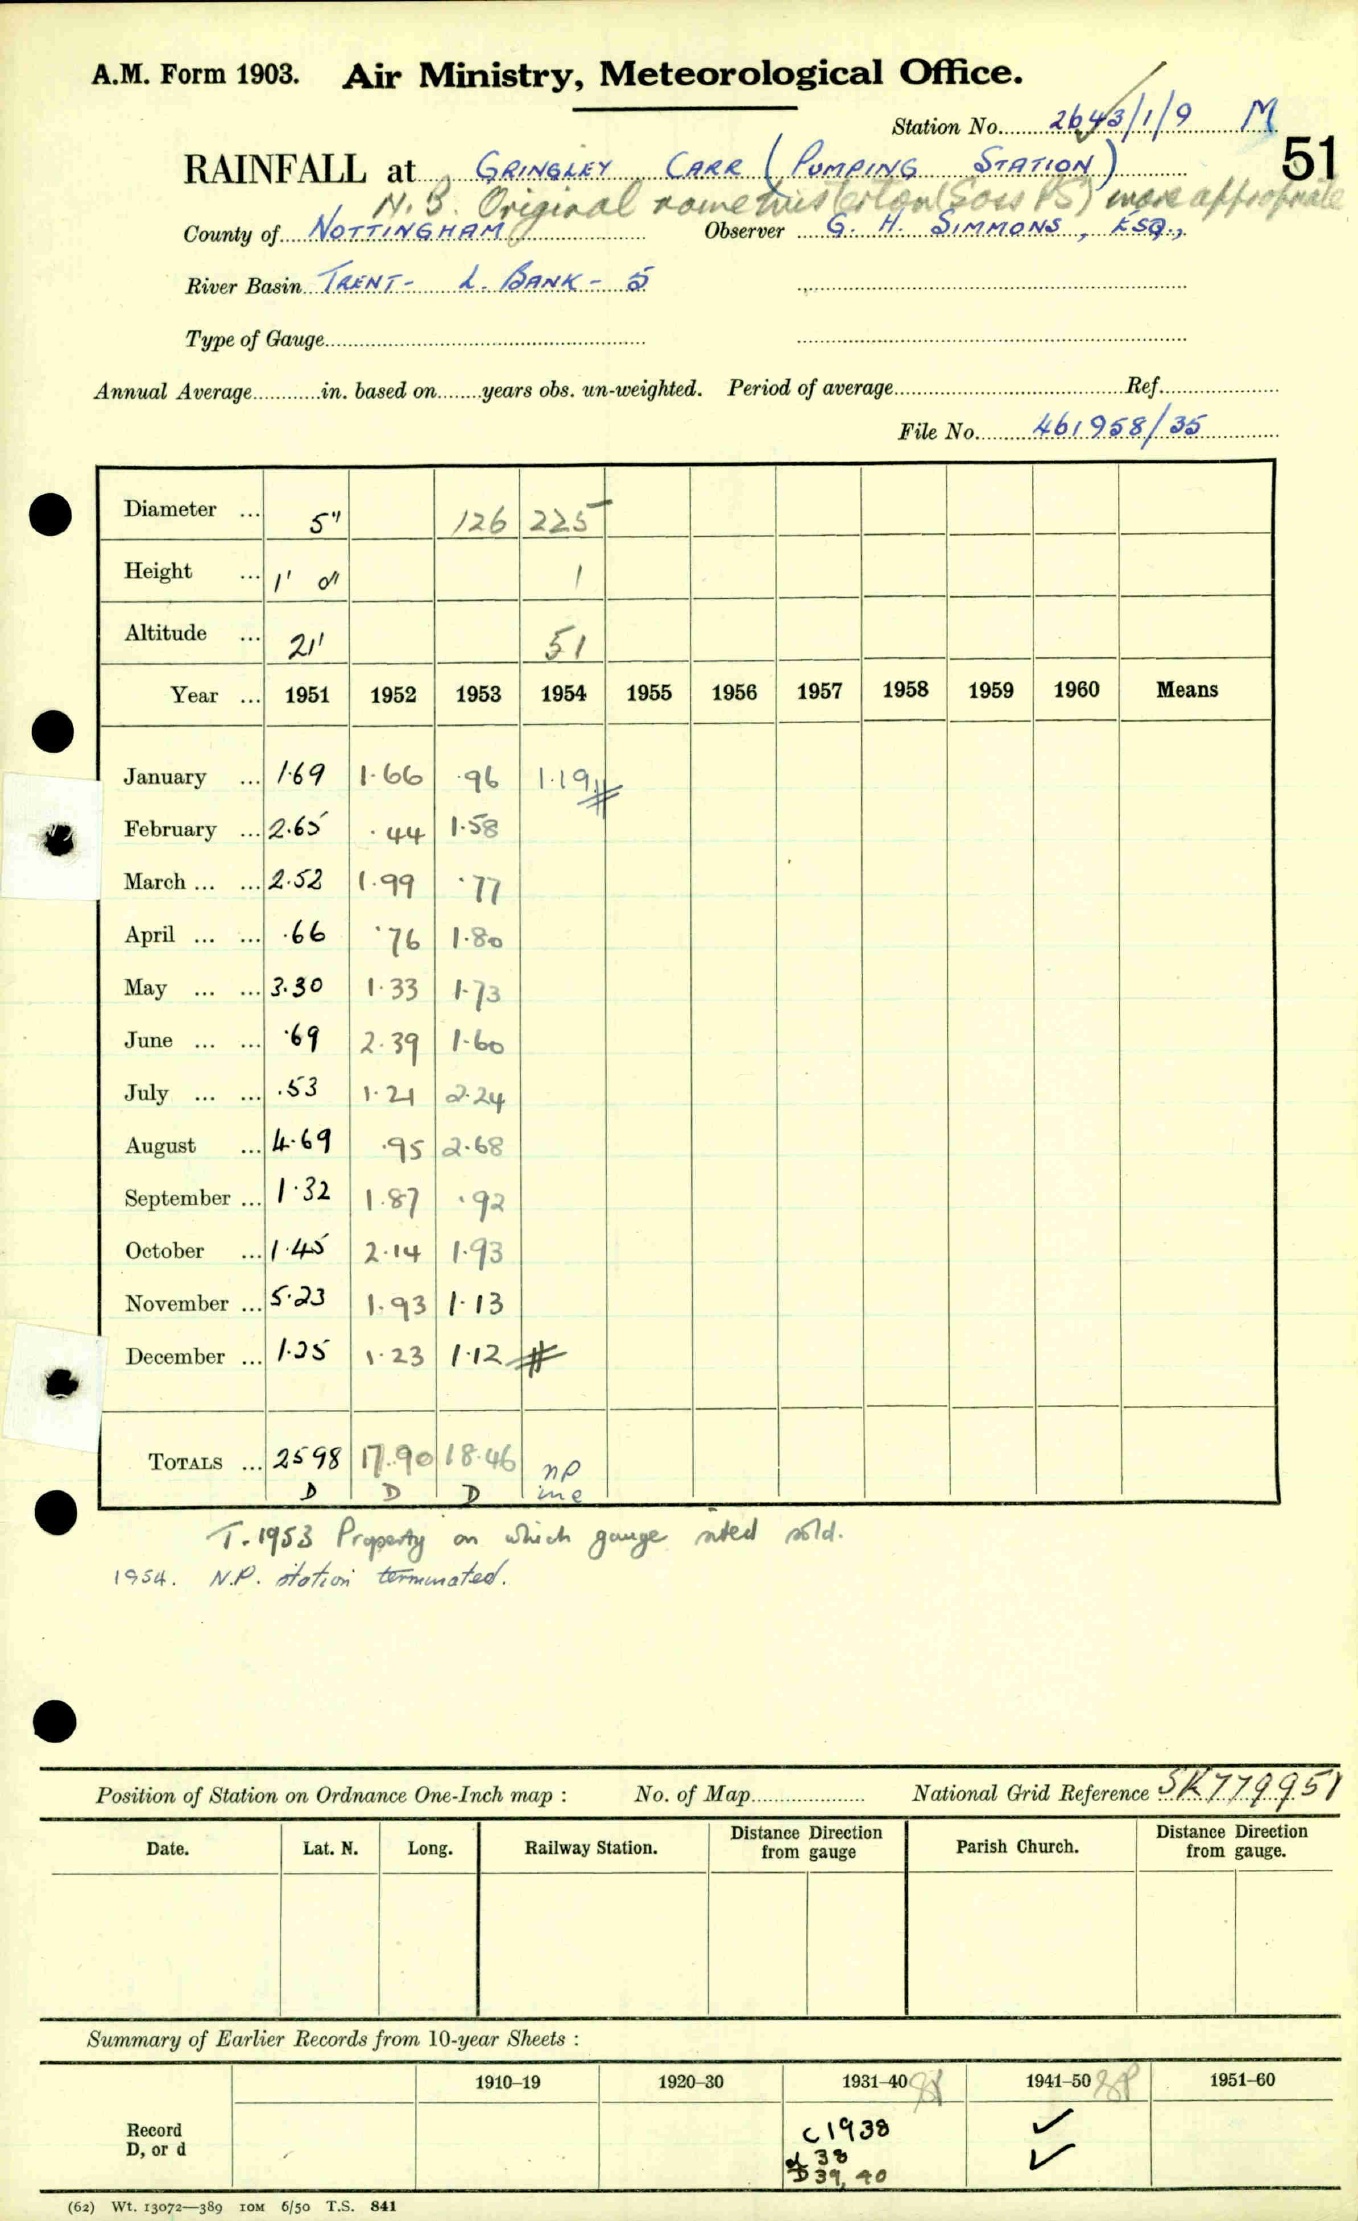 A.M. Form 1903. Air Ministry, Meteorological Office.
Station No. 2643/1/9 M
51
RAINFALL at GRINGLEY CARR (PUMPING STATION)
N.B. Original name Misterton (Soss PS) more appropriate
County of NOTTINGHAM Observer G. H. SIMMONS, ESQ.,
River Basin TRENT - L. BANK - 5
Type of Gauge
Annual Average in. based on years obs. un-weighted. Period of average Ref.
File No. 461958/35
Diameter ... 5" 126 225
Height ... 1' 0" 1
Altitude ... 21' 51
Year ... 1951 1952 1953 1954 1955 1956 1957 1958 1959 1960 Means
January ... 1.69 1.66 .96 1.19
February ... 2.65 .44 1.58
March ... ... 2.52 1.99 .77
April ... ... .66 .76 1.80
May ... ... 3.30 1.33 1.73
June ... ... .69 2.39 1.60
July ... ... .53 1.21 2.24
August ... 4.69 .95 2.68
September ... 1.32 1.87 .92
October ... 1.45 2.14 1.93
November ... 5.23 1.93 1.13
December ... 1.25 1.23 1.12
TOTALS ... 25 98 17.90 18.46 NP
D D D inc
T. 1953 Property on which gauge sited sold.
1954. N.P. station terminated.
Position of Station on Ordnance One-Inch map : No. of Map National Grid Reference SK779951
Date. Lat. N. Long. Railway Station. Distance from Direction gauge Parish Church. Distance from Direction gauge.
Summary of Earlier Records from 10-year Sheets :
1910–19 1920–30 1931–40 1941–50 1951–60
Record c 1938 ✓
D, or d d 38 ✓
D 39, 40
(62) Wt. 13072—389 10M 6/50 T.S. 841